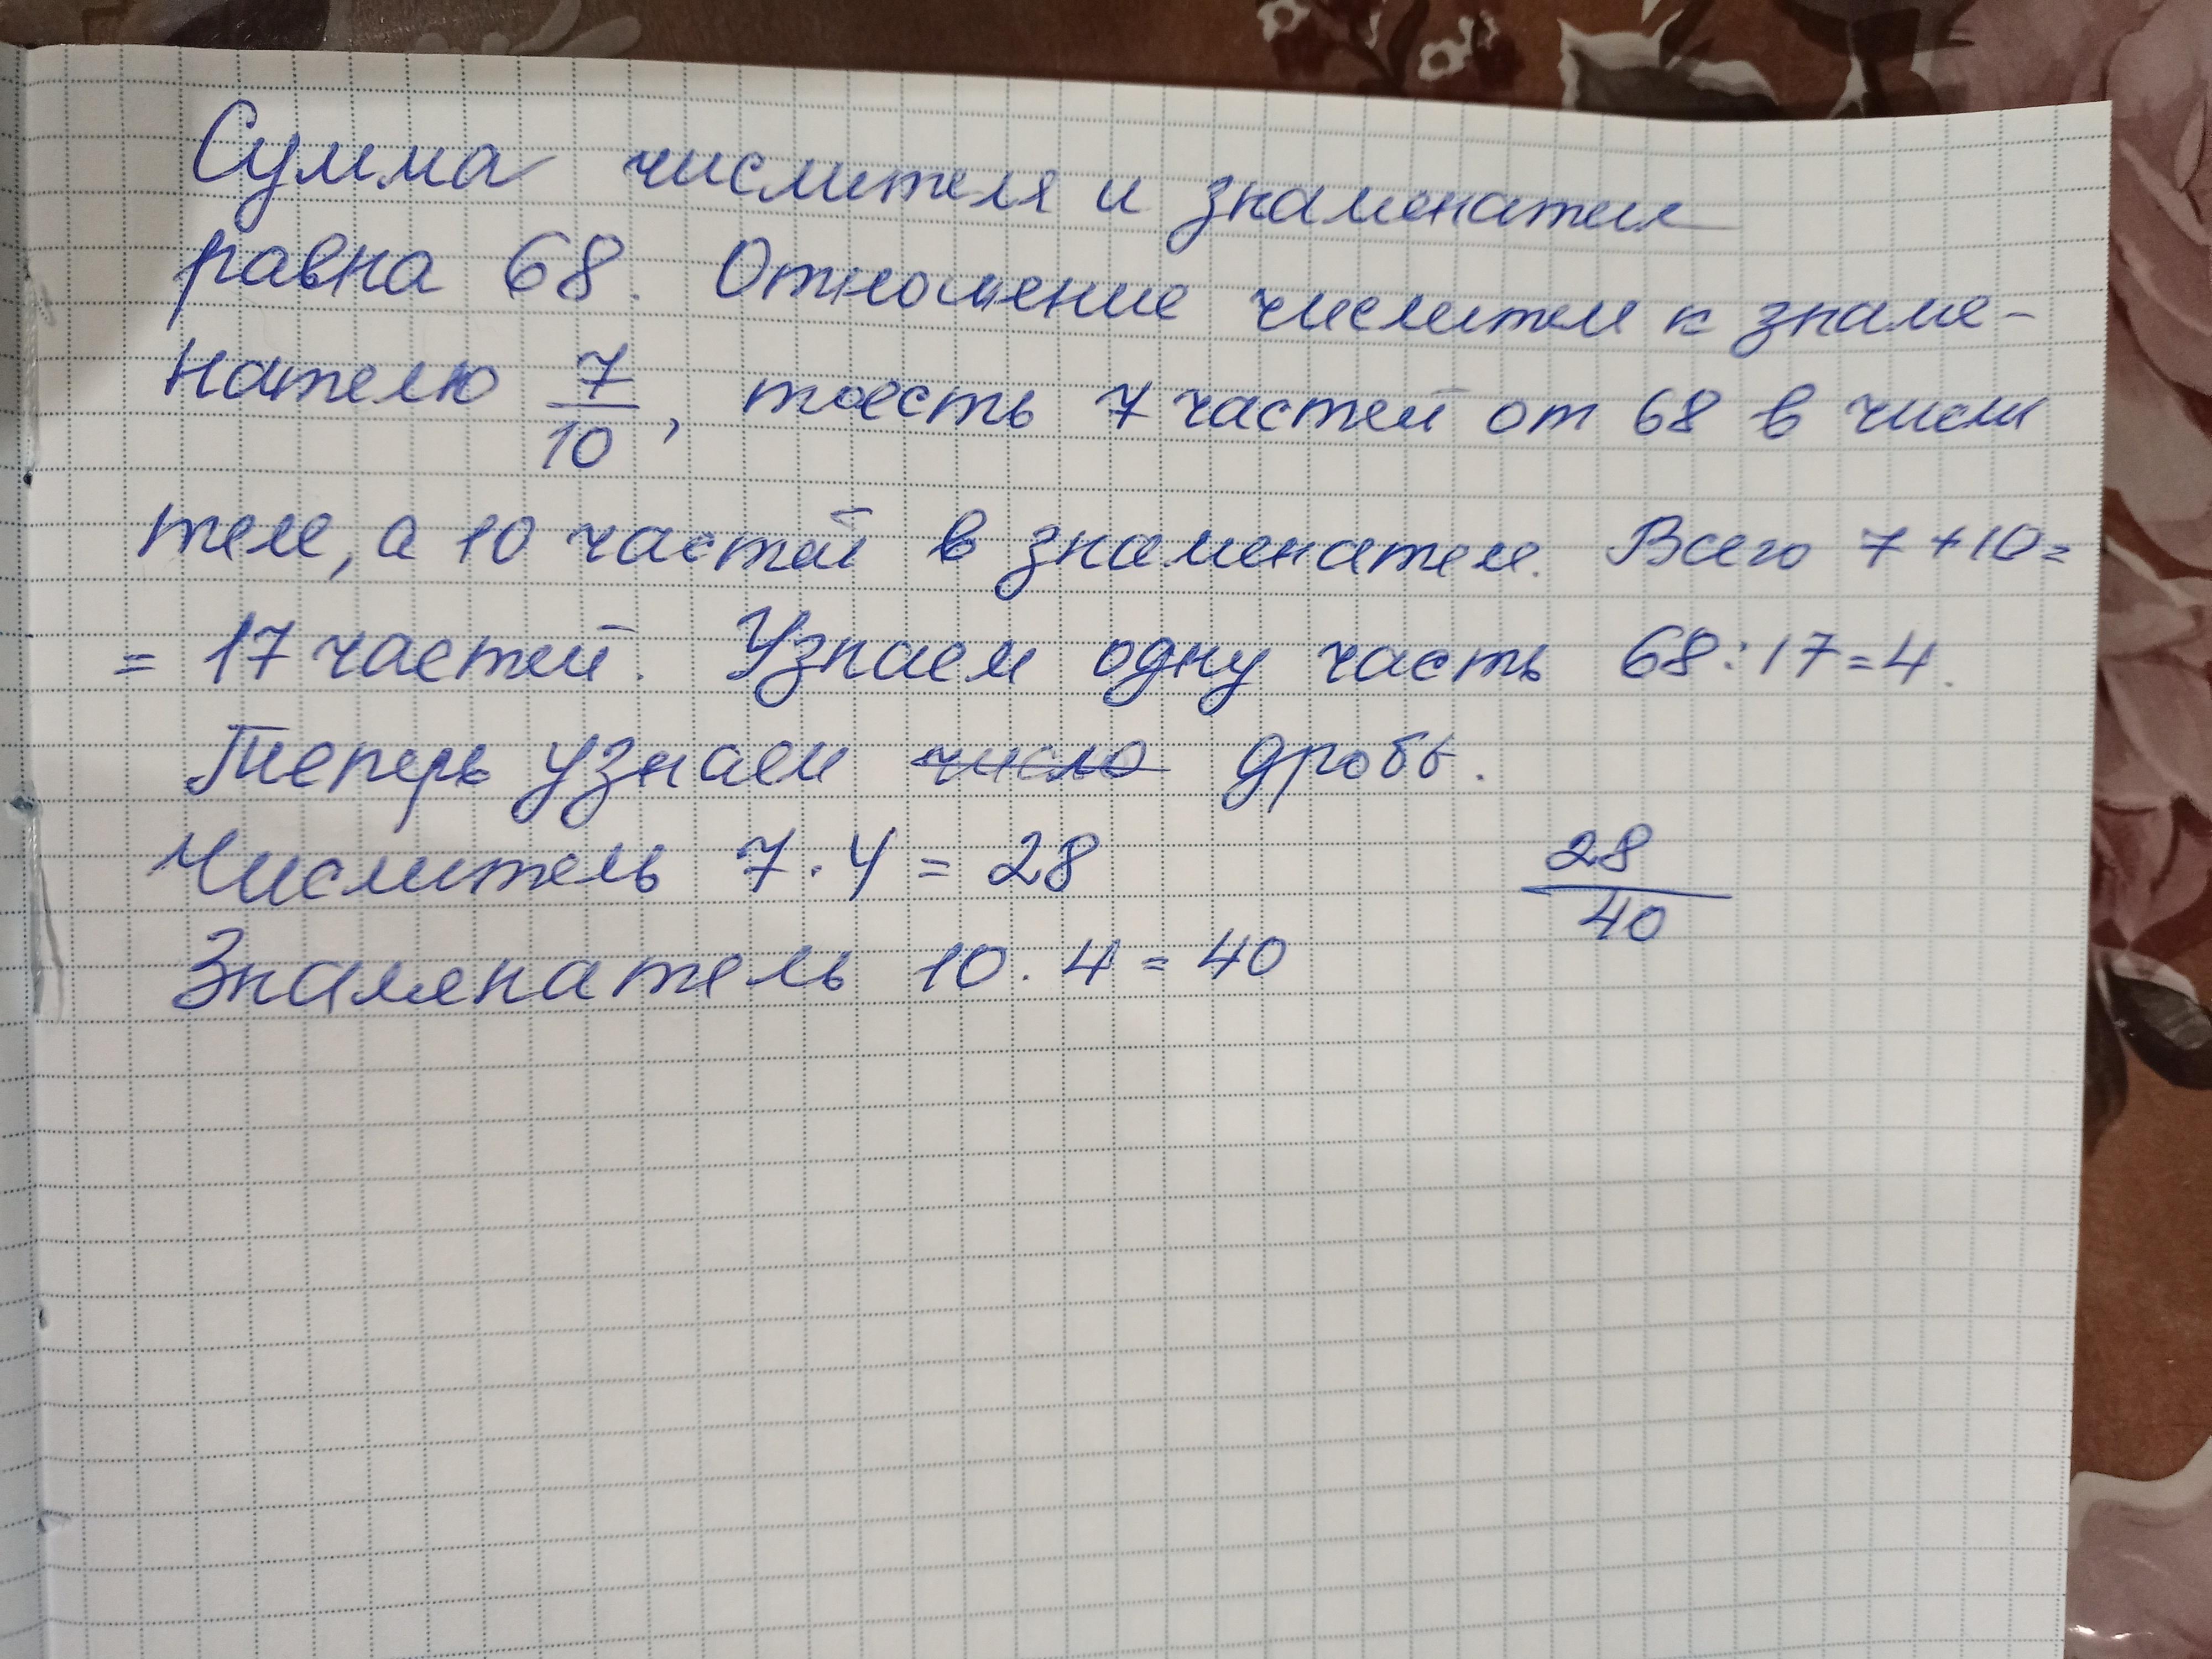 Сумма числителя и знаменателя
равна 68. Отношение числителя к знаме-
нателю 7/10, тоесть 7 частей от 68 в числи
теле, а 10 частей в знаменателе. Всего 7+10=
= 17 частей. Узнаем одну часть 68:17=4.
Теперь узнаем число дробь.
Числитель 7·4=28
28/40
Знаменатель 10·4=40